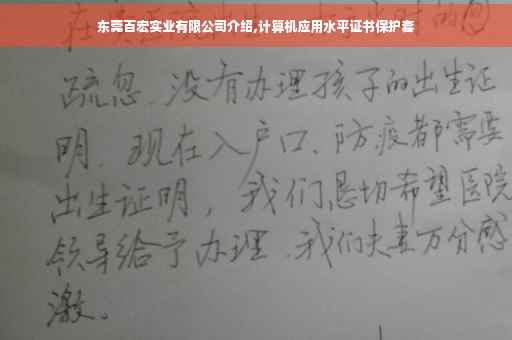 东莞百宏实业有限公司介绍,计算机应用水平证书保护套
疏忽、没有办理孩子的出生证
明、现在入户口、防疫都需要
出生证明，我们恳切希望医院
领导给予办理、我们夫妻万分感
激。